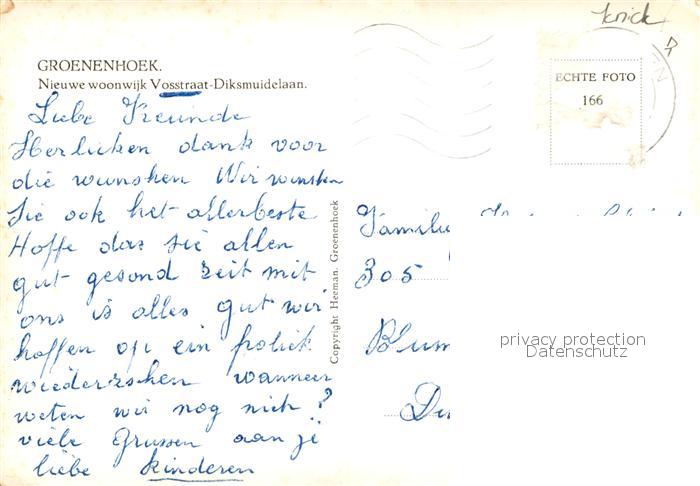 knick
GROENENHOEK.
Nieuwe woonwijk Vosstraat-Diksmuidelaan.
ECHTE FOTO
166
Liebe Freunde
Herlicken dank voor
die wunshen Wir wunshen
Sie ook het allerbeste
Hoffe das sie allen
gut gesond zeit mit
ons is alles gut wir
hoffen op ein frolick
wiederzehen wanneer
weten wir nog nich?
viele Grussen aan je
liebe kinderen
Copyright Heeman. Groenenhoek
Familie
305
Blum
privacy protection
Datenschutz